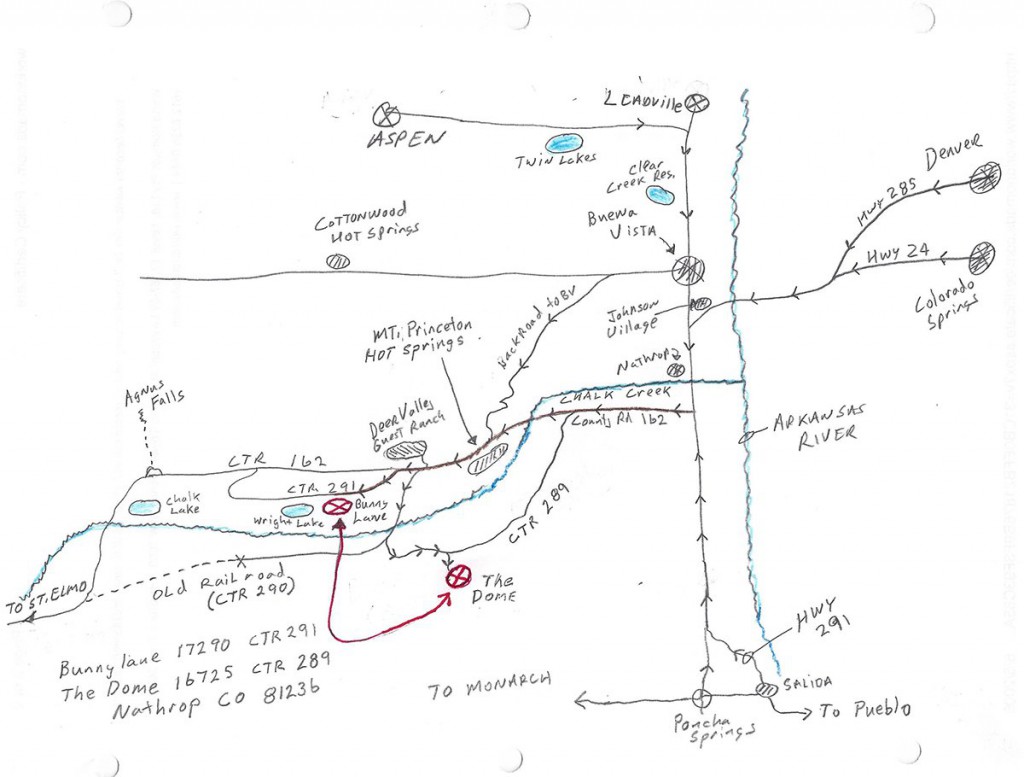 LEADVille
ASPEN
Twin Lakes
Clear
Creek Res.
Denver
Hwy 285
Buena
VISTA
COTTONWOOD
HOT Springs
Hwy 24
Colorado
Springs
Johnson
Village
BACK ROAD to BV
MT. Princeton
HOT Springs
Nathrop
Agnus
Falls
CHALK Creek
County Rd 162
Deer Valley
Guest Ranch
ARKANSAS
RIVER
CTR 162
CTR 291
Chalk
Lake
Wright Lake
Bunny
Lane
CTR 289
The
Dome
TO ST. ELMO
OLd Railroad
(CTR 290)
HWY
291
Bunny lane 17290 CTR 291
The Dome 16725 CTR 289
Nathrop CO 81236
TO MONARCH
SALIDA
Poncha
Springs
To Pueblo